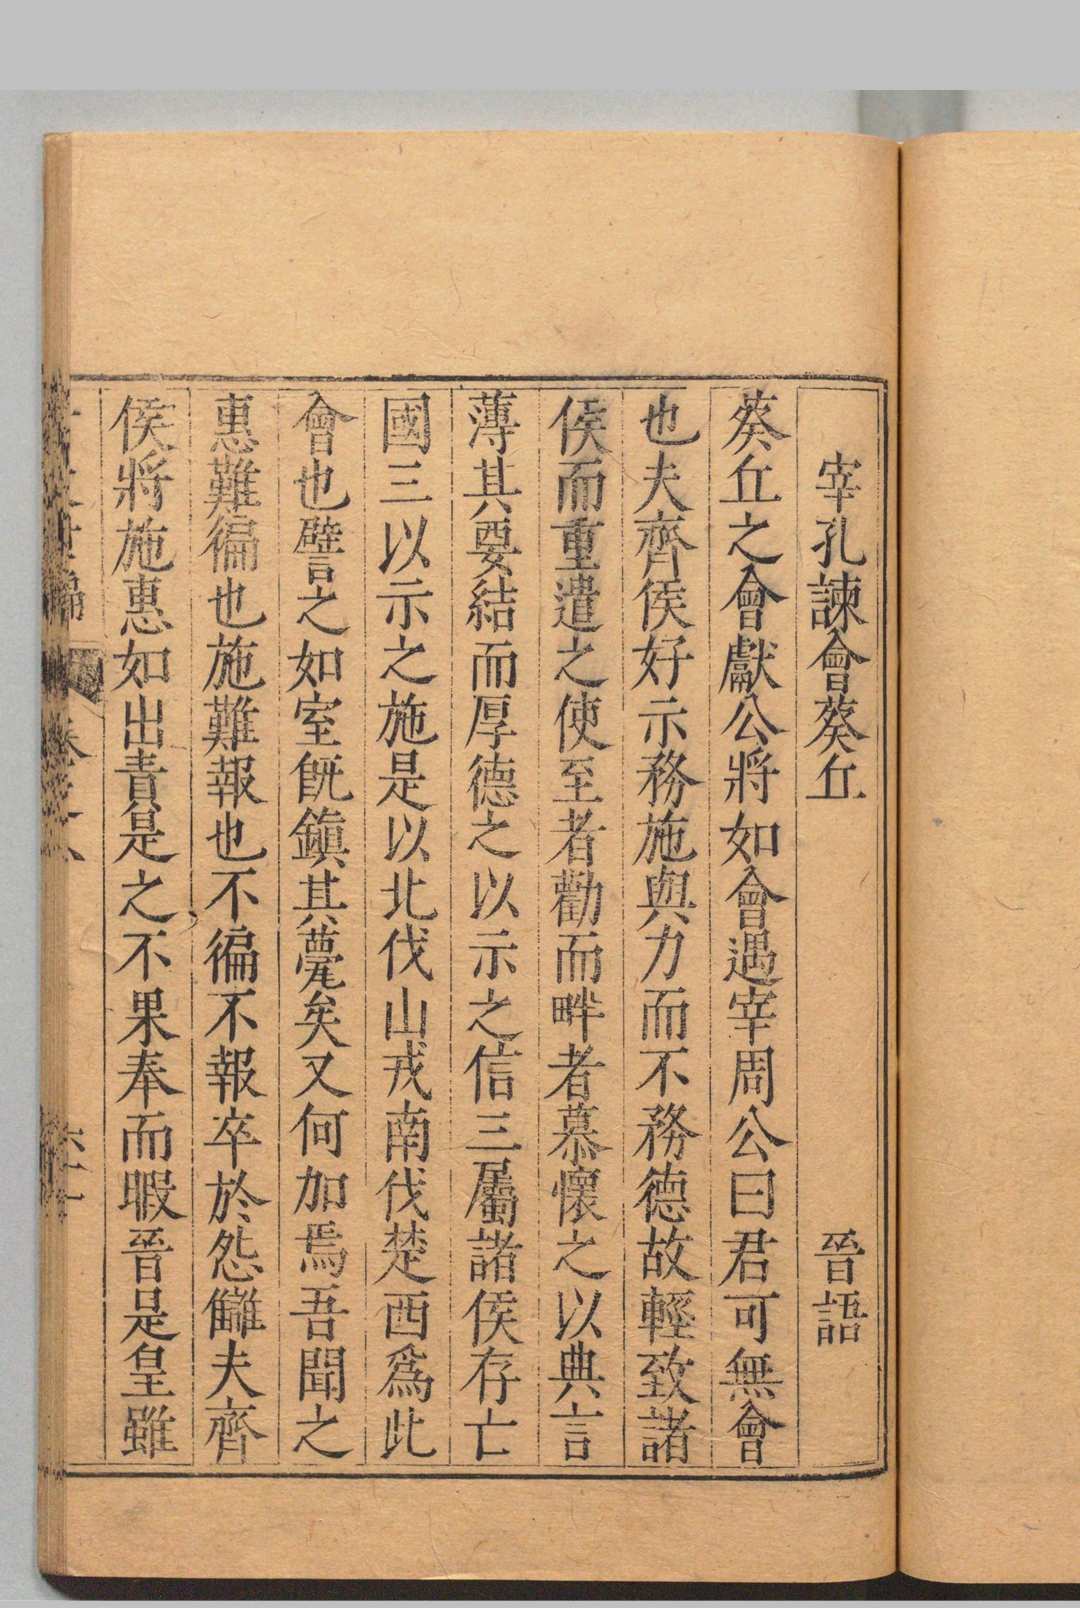 宰孔諫會葵丘 晉語
葵丘之會獻公將如會遇宰周公曰君可無會
也夫齊侯好示務施與力而不務德故輕致諸
侯而重遣之使至者勸而畔者慕懷之以典言
薄其要結而厚德之以示之信三屬諸侯存亡
國三以示之施是以北伐山戎南伐楚西爲此
會也譬之如室旣鎭其甍矣又何加焉吾聞之
惠難徧也施難報也不徧不報卒於怨讎夫齊
侯將施惠如出責是之不果奉而暇晉是皇雖